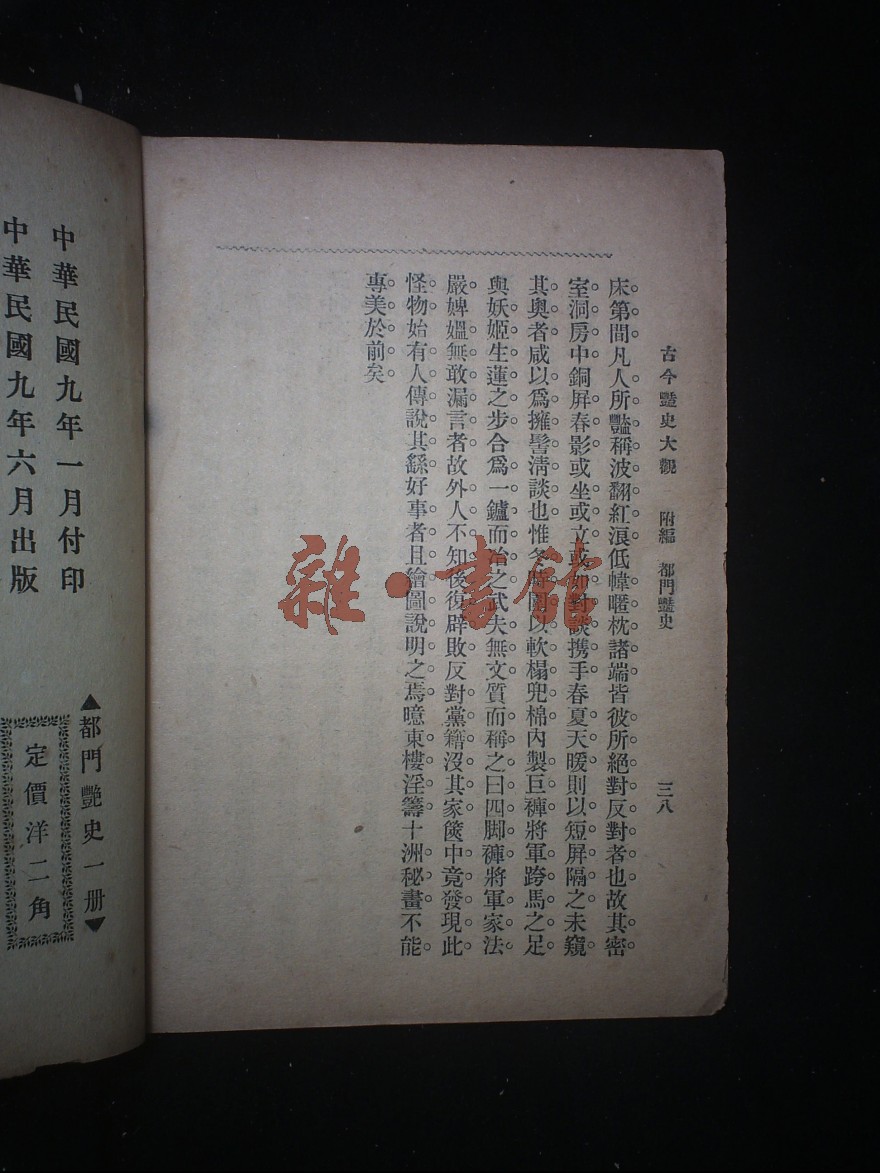 古今豔史大觀　附編　都門豔史　三八
床第間凡人所豔稱波翻紅浪低幃暱枕諸端皆彼所絕對反對者也故其密
室洞房中銅屏春影或坐或立或如對談携手春夏天暖則以短屏隔之未窺
其奧者咸以爲擁髻淸談也惟冬時圍以軟榻兜棉內製巨褲將軍跨馬之足
與妖姬生蓮之步合爲一鑪而冶之武夫無文質而稱之曰四脚褲將軍家法
嚴婢媼無敢漏言者故外人不知後復辟敗反對黨籍沒其家篋中竟發現此
怪物始有人傳說其繇好事者且繪圖說明之焉噫東樓淫籌十洲秘畫不能
專美於前矣
中華民國九年一月付印
中華民國九年六月出版
▲都門艷史一册▼
定價洋二角
雜·書館